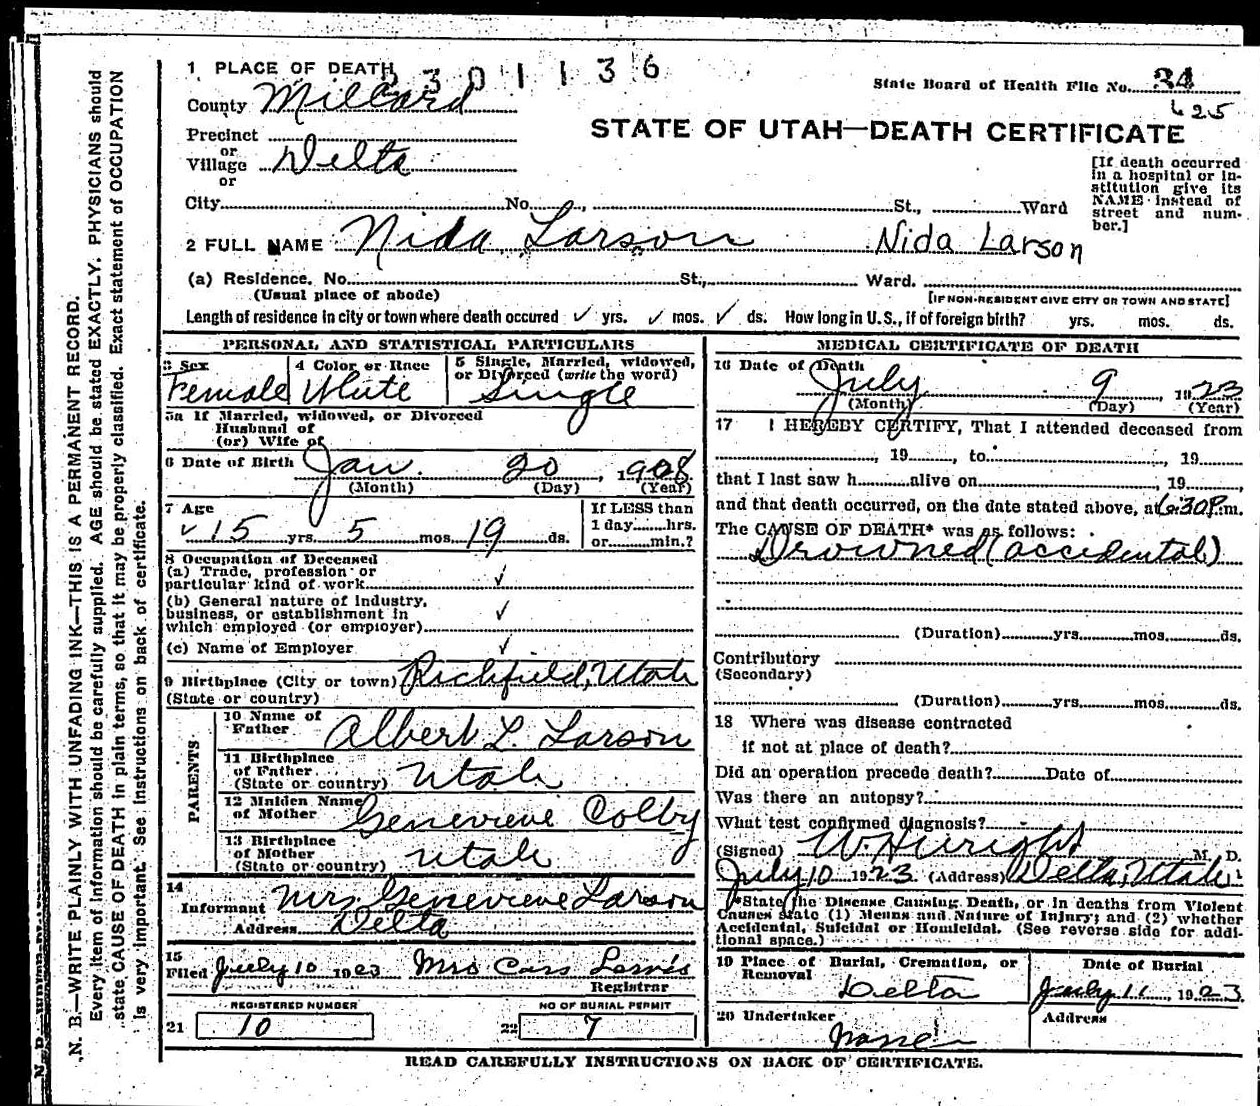 1 PLACE OF DEATH 2301136
State Board of Health File No. 34
County Millard
625
STATE OF UTAH—DEATH CERTIFICATE
Precinct
or
Village Delta
or
[If death occurred in a hospital or in-
stitution give its
NAME instead of
street and num-
ber.]
City No. , St., Ward
2 FULL NAME Nida Larson Nida Larson
(a) Residence. No. St., Ward.
(Usual place of abode) [IF NON-RESIDENT GIVE CITY OR TOWN AND STATE]
Length of residence in city or town where death occured ✓ yrs. ✓ mos. ✓ ds. How long in U.S., if of foreign birth? yrs. mos. ds.
PERSONAL AND STATISTICAL PARTICULARS
3 Sex
Female
4 Color or Race
White
5 Single, Married, widowed,
or Divorced (write the word)
Single
5a If Married, widowed, or Divorced
Husband of
(or) Wife of
6 Date of Birth Jan. 20, 1908
(Month) (Day) (Year)
7 Age
✓ 15 yrs. 5 mos. 19 ds.
If LESS than
1 day hrs.
or min.?
8 Occupation of Deceased
(a) Trade, profession or
particular kind of work ✓
(b) General nature of industry,
business, or establishment in
which employed (or employer) ✓
(c) Name of Employer ✓
9 Birthplace (City or town) Richfield, Utah
(State or country)
PARENTS
10 Name of
Father Albert L. Larson
11 Birthplace
of Father
(State or country) Utah
12 Maiden Name
of Mother Genevieve Colby
13 Birthplace
of Mother
(State or country) Utah
14
Informant Mrs. Genevieve Larson
Address Delta
15
Filed July 10 1923 Mrs
Registrar
REGISTERED NUMBER
21 10
NO OF BURIAL PERMIT
22 7
MEDICAL CERTIFICATE OF DEATH
16 Date of Death
July 9, 1923
(Month) (Day) (Year)
17 I HEREBY CERTIFY, That I attended deceased from
, 19 , to , 19
that I last saw h alive on , 19
and that death occurred, on the date stated above, at 6:30P.m.
The CAUSE OF DEATH* was as follows:
Drowned (accidental)
(Duration) yrs. mos. ds.
Contributory
(Secondary)
(Duration) yrs. mos. ds.
18 Where was disease contracted
if not at place of death?
Did an operation precede death? Date of
Was there an autopsy?
What test confirmed diagnosis?
(Signed) M. D.
July 10 1923 (Address) Delta, Utah
*State the Disease Causing Death, or in deaths from Violent
Causes state (1) Means and Nature of Injury; and (2) whether
Accidental, Suicidal or Homicidal. (See reverse side for addi-
tional space.)
19 Place of Burial, Cremation, or
Removal
Delta
Date of Burial
July 11, 1923
20 Undertaker
None
Address
READ CAREFULLY INSTRUCTIONS ON BACK OF CERTIFICATE.
N. B.—WRITE PLAINLY WITH UNFADING INK—THIS IS A PERMANENT RECORD.
Every item of information should be carefully supplied. AGE should be stated EXACTLY. PHYSICIANS should
state CAUSE OF DEATH in plain terms, so that it may be properly classified. Exact statement of OCCUPATION
is very important. See instructions on back of certificate.